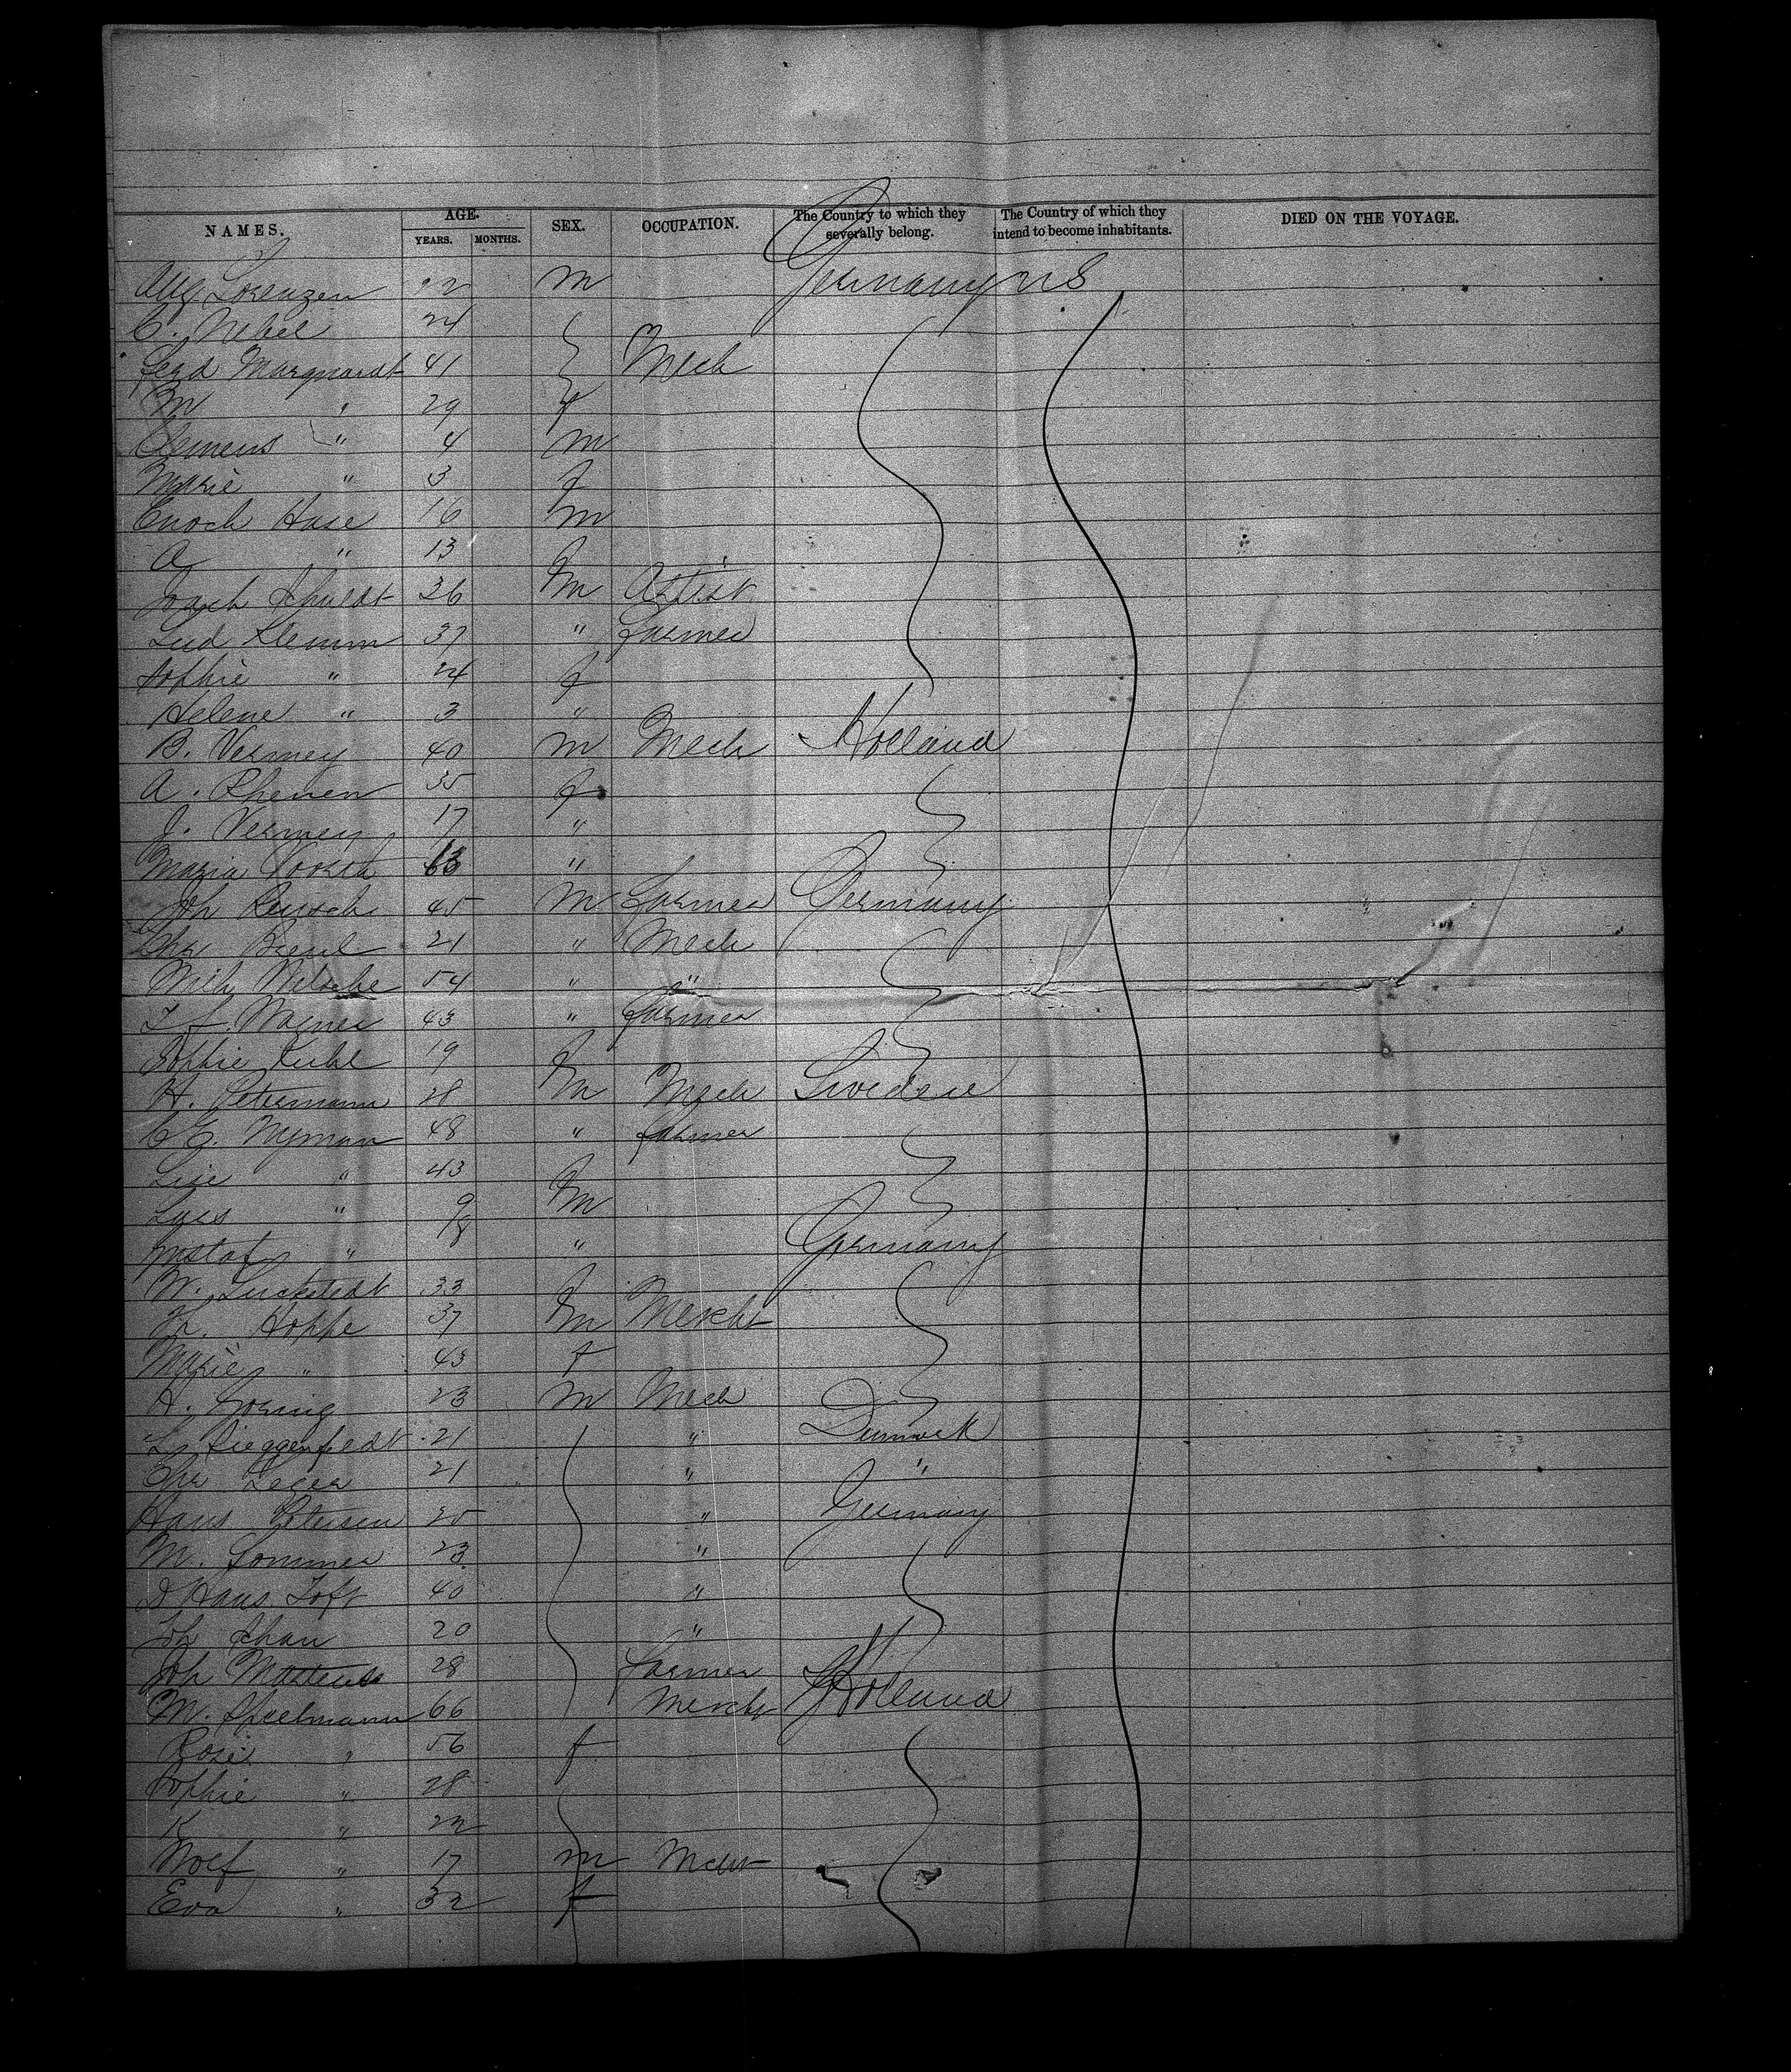 NAMES. AGE. YEARS. MONTHS. SEX. OCCUPATION. The Country to which they severally belong. The Country of which they intend to become inhabitants. DIED ON THE VOYAGE.
Aug Lorenzen 22 m Germany U S
C. Nebel 24
Ferd Marquardt 41 Mech
M " 29 f
Clemens " 4 m
Marie " 3 f
Enoch Hase 16 m
A " 13
Joach Schuldt 26 m Artist
Lud Klemm 37 " Farmer
Sophie " 24 f
Helene " 3 "
B. Vermey 40 m Mech Holland
A. Rhenen 35 f
J. Vermey 17 "
Maria "
Joh Reusch 45 m Farmer Germany
Chr 21 " Mech
Wilh Nitsche 54 " "
Wagner 43 " Farmer
Sophie Kuhl 19 f
H. Petermann 28 m Mech Sweden
C G. Nyman 48 " Farmer
Lise " 43 f
Lars " 9 m
Gustaf " 8 "
Germany
W. Luckstedt 33 f
Hoppe 37 m Mercht
Marie " 43 f
H. Goring 23 m Mech
21 " Denmark
Chr 21 " "
Hans Petersen 25 " Germany
M. Sommer 23 "
Hans Toft 40 "
Joh Schau 20 "
Joh Martens 28 Farmer
M. Speelmann 66 Mercht Holland
Rosi " 56 f
Sophie " 28
K " 22
Wolf " 17 m Mcht
Eva " 32 f